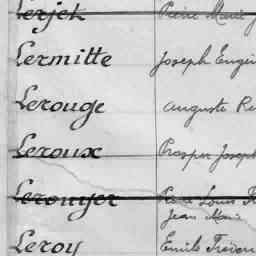 Lerjek Pierre Marie
Lermitte Joseph Eugène
Lerouge Auguste Re
Leroux Prosper Joseph
Lerouyer Pierre Louis
Jean Marie
Leroy Emile